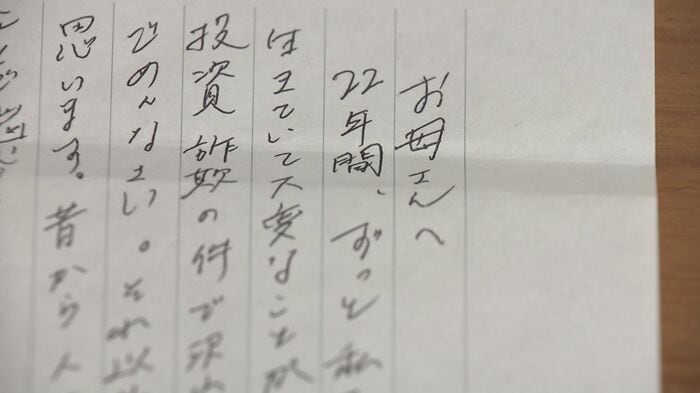 お母さんへ
22年間、ずっと私
生きていて大変なことが
投資詐欺の件で沢山
ごめんなさい。それ以
思います。昔から人